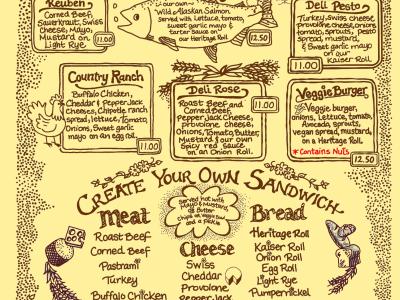 Reuben
Corned Beef,
Sauerkraut, Swiss
Cheese, Mayo,
Mustard on
Light Rye
11.00
our own
Wild Alaskan Salmon.
Served with Lettuce, tomato,
sweet garlic mayo &
tarter sauce on
our Heritage Roll
12.50
Deli Pesto
Turkey, Swiss cheese,
provolone cheese, onions
tomato, sprouts, pesto
spread, mustard,
& Sweet garlic mayo
on our
Kaiser Roll
11.00
Country Ranch
Buffalo Chicken,
Cheddar & Pepper Jack
Cheeses, Chipotle ranch
spread, lettuce, Tomato,
Onions, Sweet garlic
mayo on an egg roll.
11.00
Deli Rose
11.00
Roast Beef and
Corned Beef,
Pepper Jack Cheese,
provolone cheese
Onions, Tomato, Butter,
Mustard & our own
Spicy red sauce
on an Onion Roll.
Veggie Burger
Veggie burger,
onions, Lettuce, tomato,
Avocado, sprouts,
vegan spread, mustard,
on a Heritage Roll.
*Contains Nuts
12.50
Create Your Own Sandwich
Served hot with
Mayo & Mustard
or Butter
chips or veggie
and a pickle
Meat
Roast Beef
Corned Beef
Pastrami
Turkey
Buffalo Chicken
Cheese
Swiss
Cheddar
Provolone
Pepper Jack
Bread
Heritage Roll
Kaiser Roll
Onion Roll
Egg Roll
Light Rye
Pumpernickel